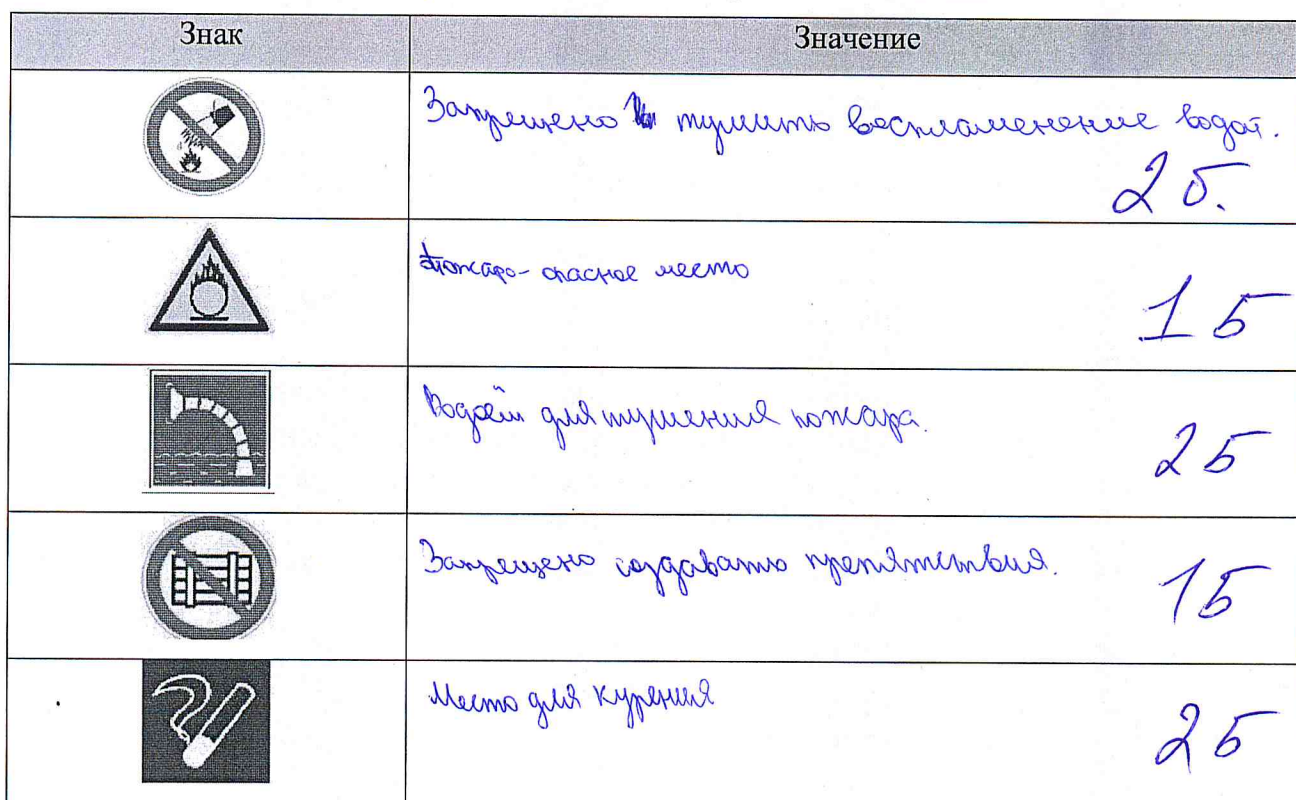 Знак
Значение
Запрещено тушить воспламенение водой.
2 б.
Пожаро-опасное место
1 б
Водоём для тушения пожара.
2 б
Запрещено создавать препятствия.
1 б
Место для курения
2 б